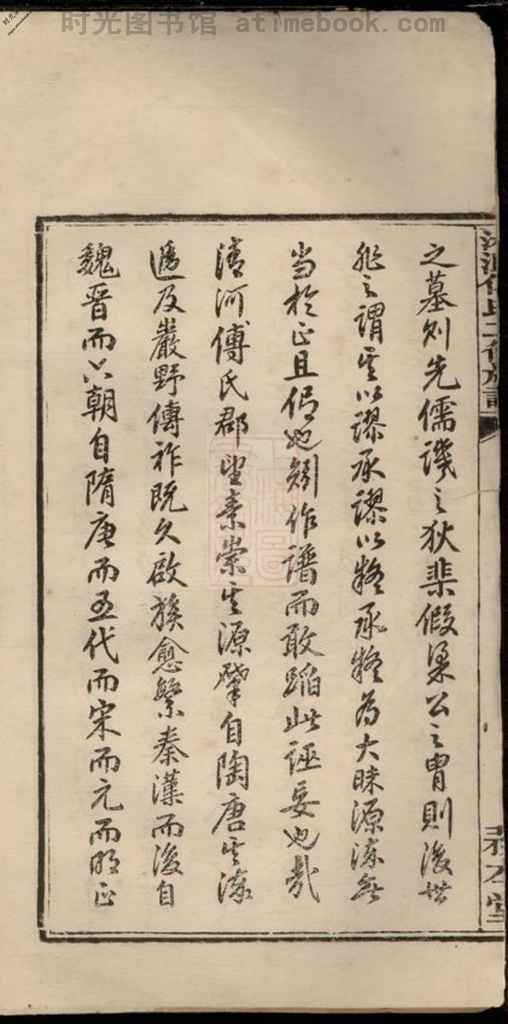 时光图书馆 atimebook.com
之墓则先儒讥之狄棐假梁公之胄則後世
非之谓其以謬承謬以疑承疑为大昧源流無
当於正且伪也矧作譜而敢蹈此誣妄也哉
清河傅氏郡望素崇其源肇自陶唐其流
遞及嚴野傳祚既久啟族愈繁秦漢而後自
魏晋而六朝自隋唐而五代而宋而元而明正
務本堂